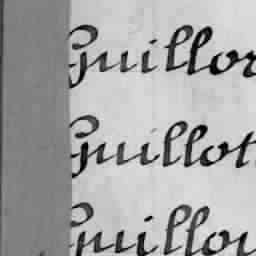 Guillor
Guillot
Guillou